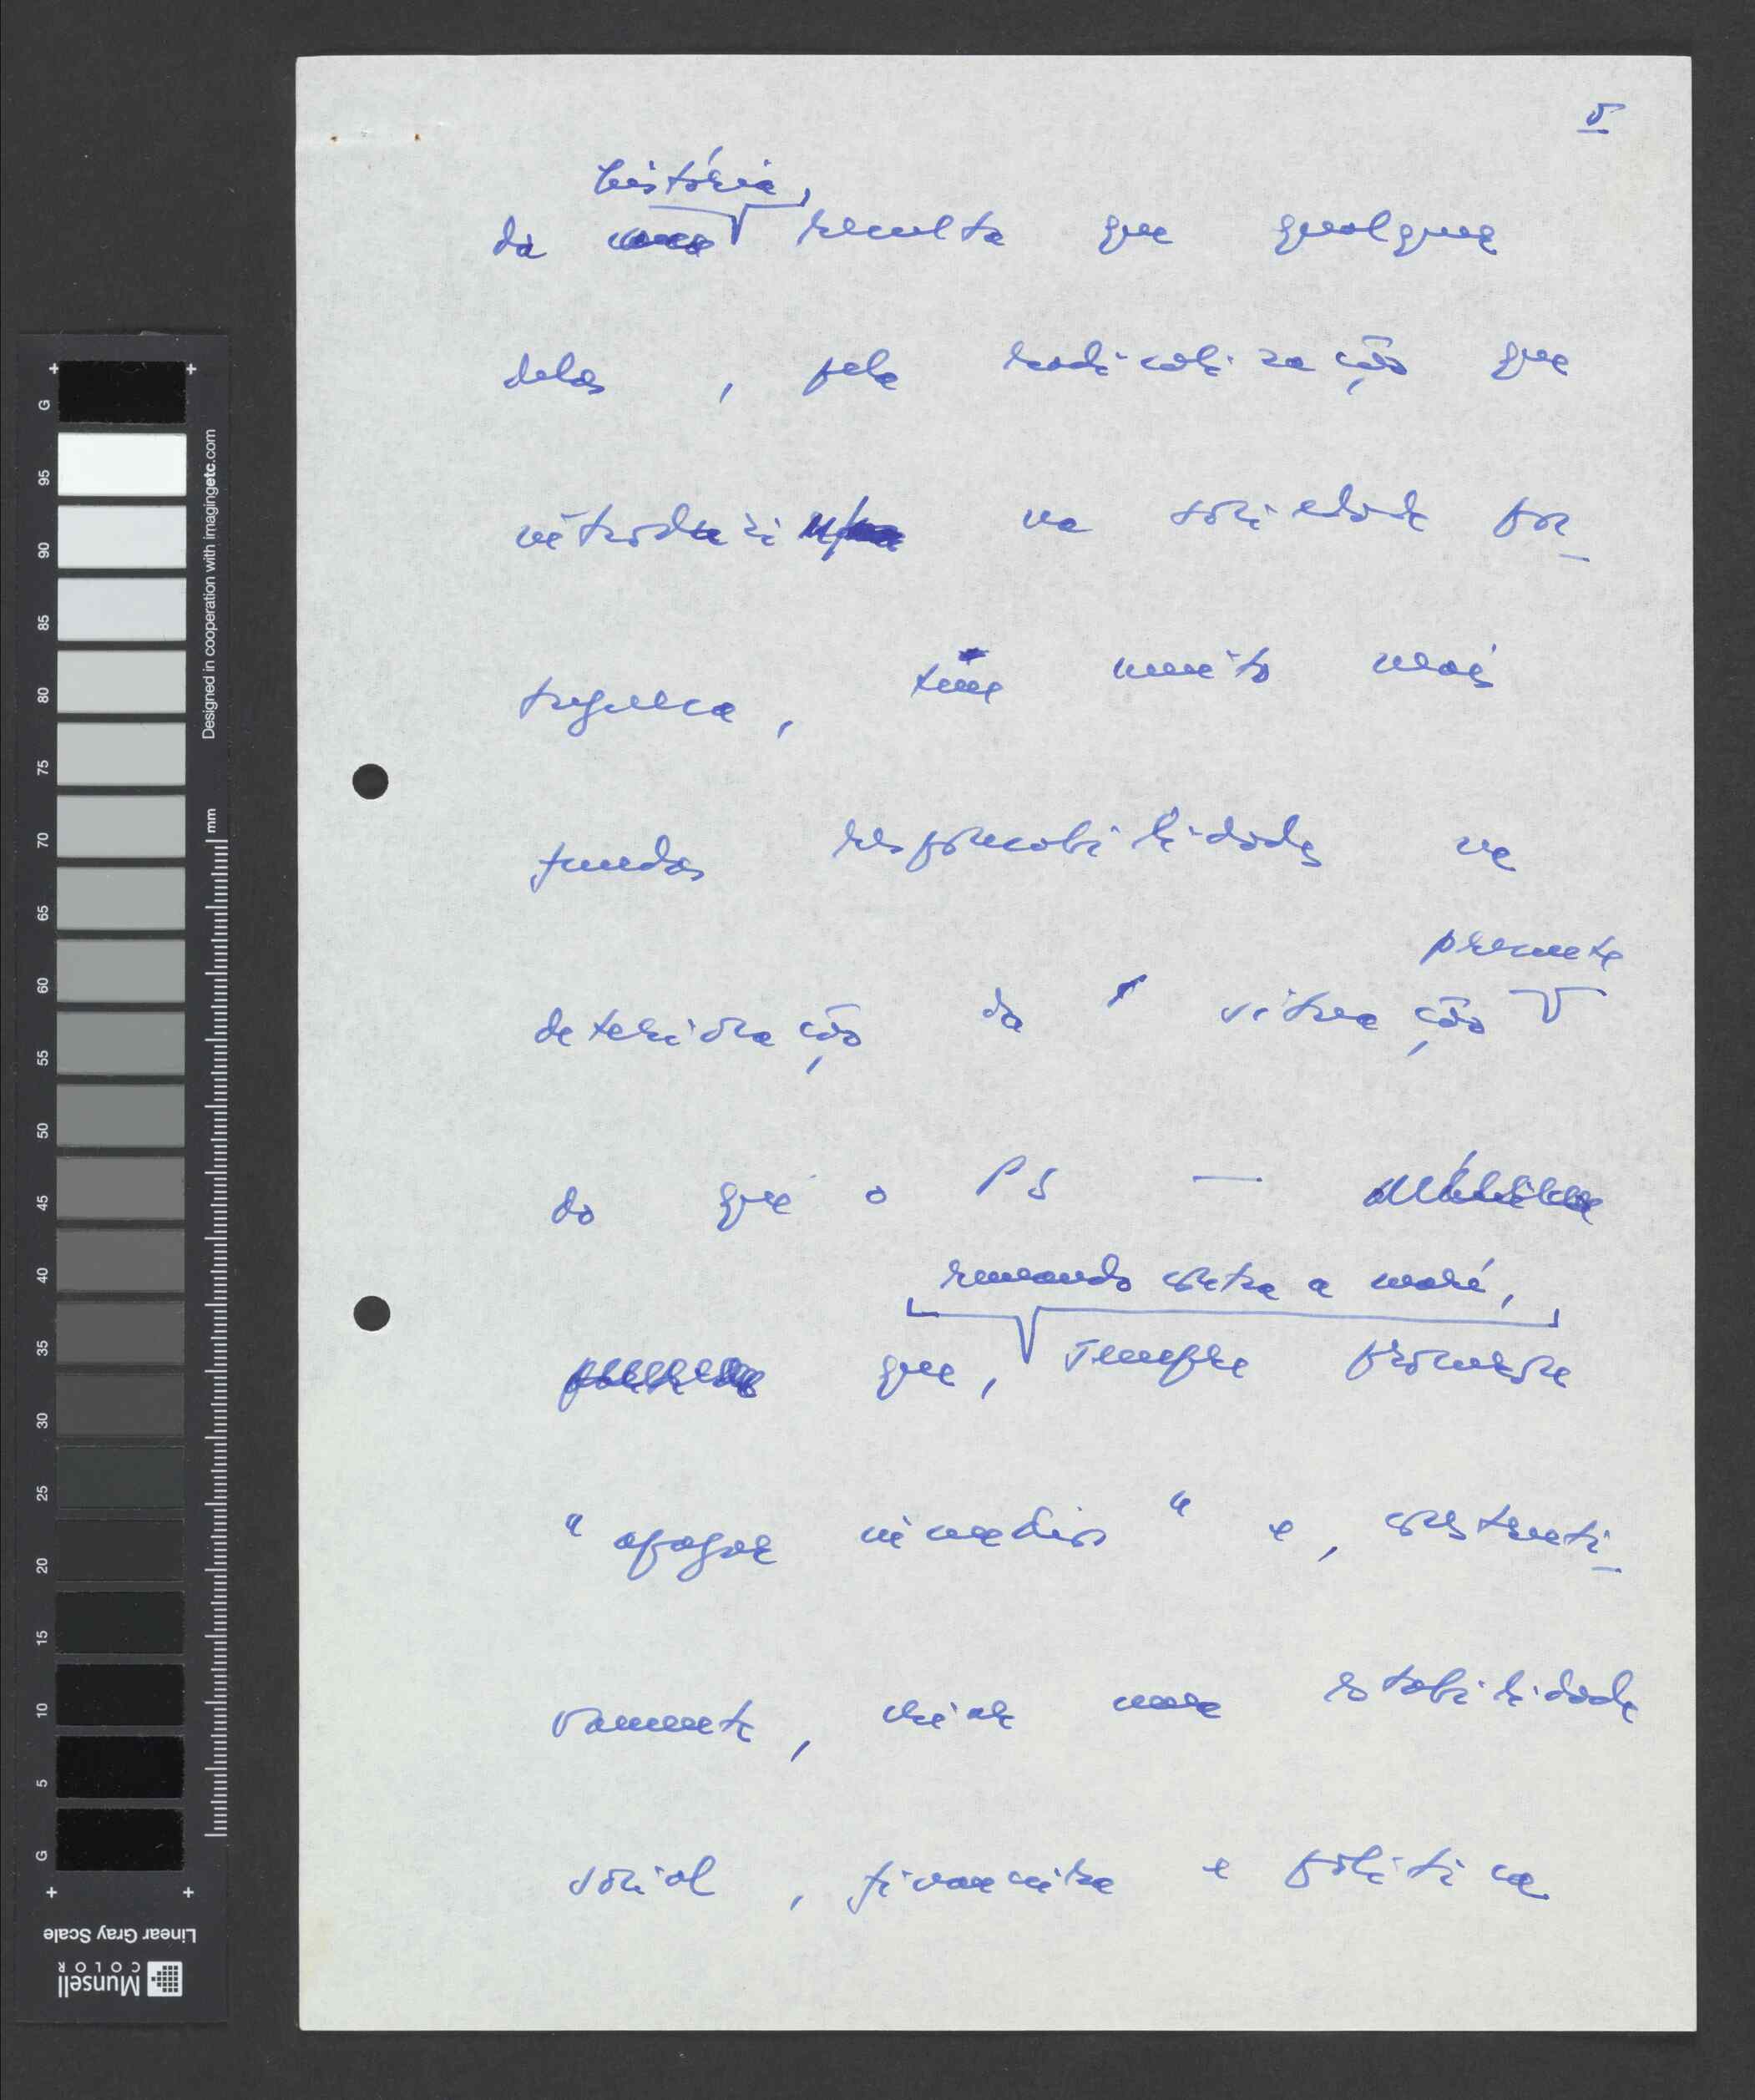 5
história,
da resulta que qualquer
delas, pela radicalização que
introduzi na sociedade por_
tuguesa, teve muito mais
fundas responsabilidades na
presente
deterioração da situação
do que o PS —
remando contra a maré,
que, sempre procurou
"apagar incêndios" e, construti_
vamente, criar uma estabilidade
social, financeira e política
G
95
90
85
80
75
70
65
60
55
50
45
40
35
30
25
20
15
10
5
G
Designed in cooperation with imagingetc.com
mm
Linear Gray Scale
Munsell
COLOR